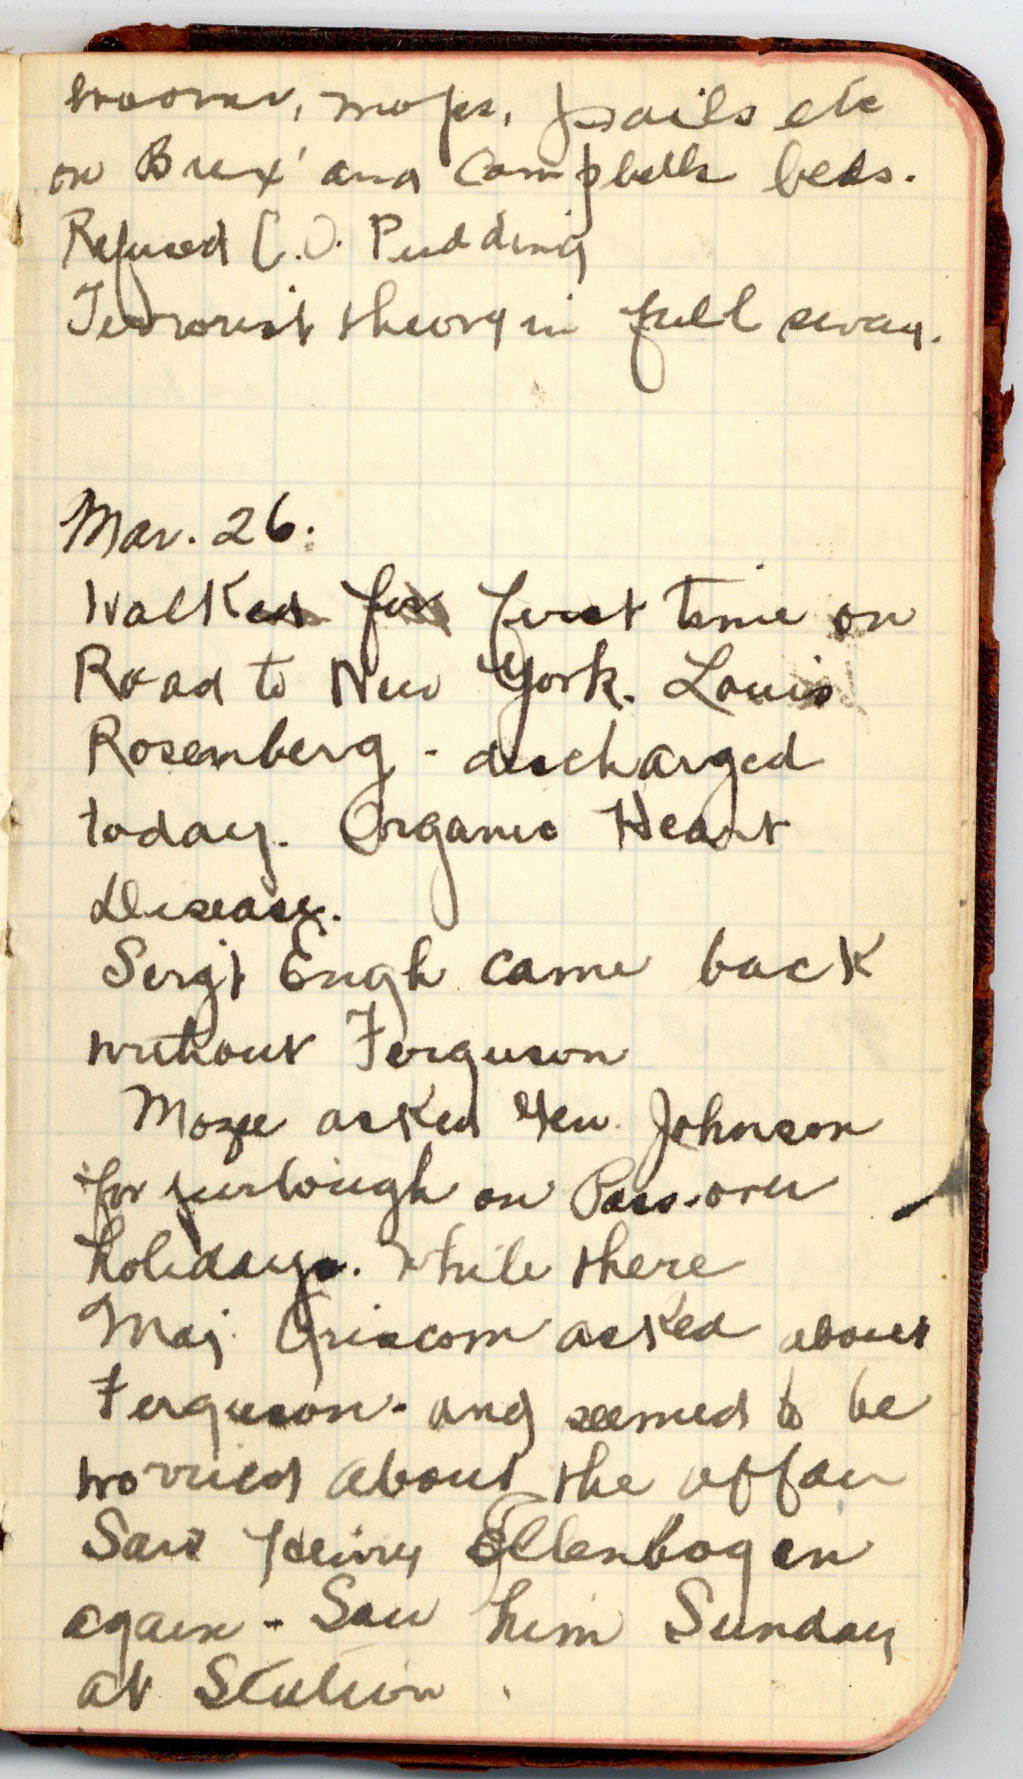 mops, pails etc
on Brex' and Campbells beds.
Refused C.O. Pudding
Terrorist theory in full sway.
Mar. 26.
Walked for first time on
Road to New York. Louis
Rosenberg - discharged
today. Organic Heart
Disease.
Sergt Engh came back
without Ferguson
Mozee asked Gen. Johnson
for furlough on Pass-over
holidays. While there
Maj. Griscom asked about
Ferguson - and seemed to be
worried about the affair
Saw Henry Ellenbogen
again - Saw him Sunday
at Station.